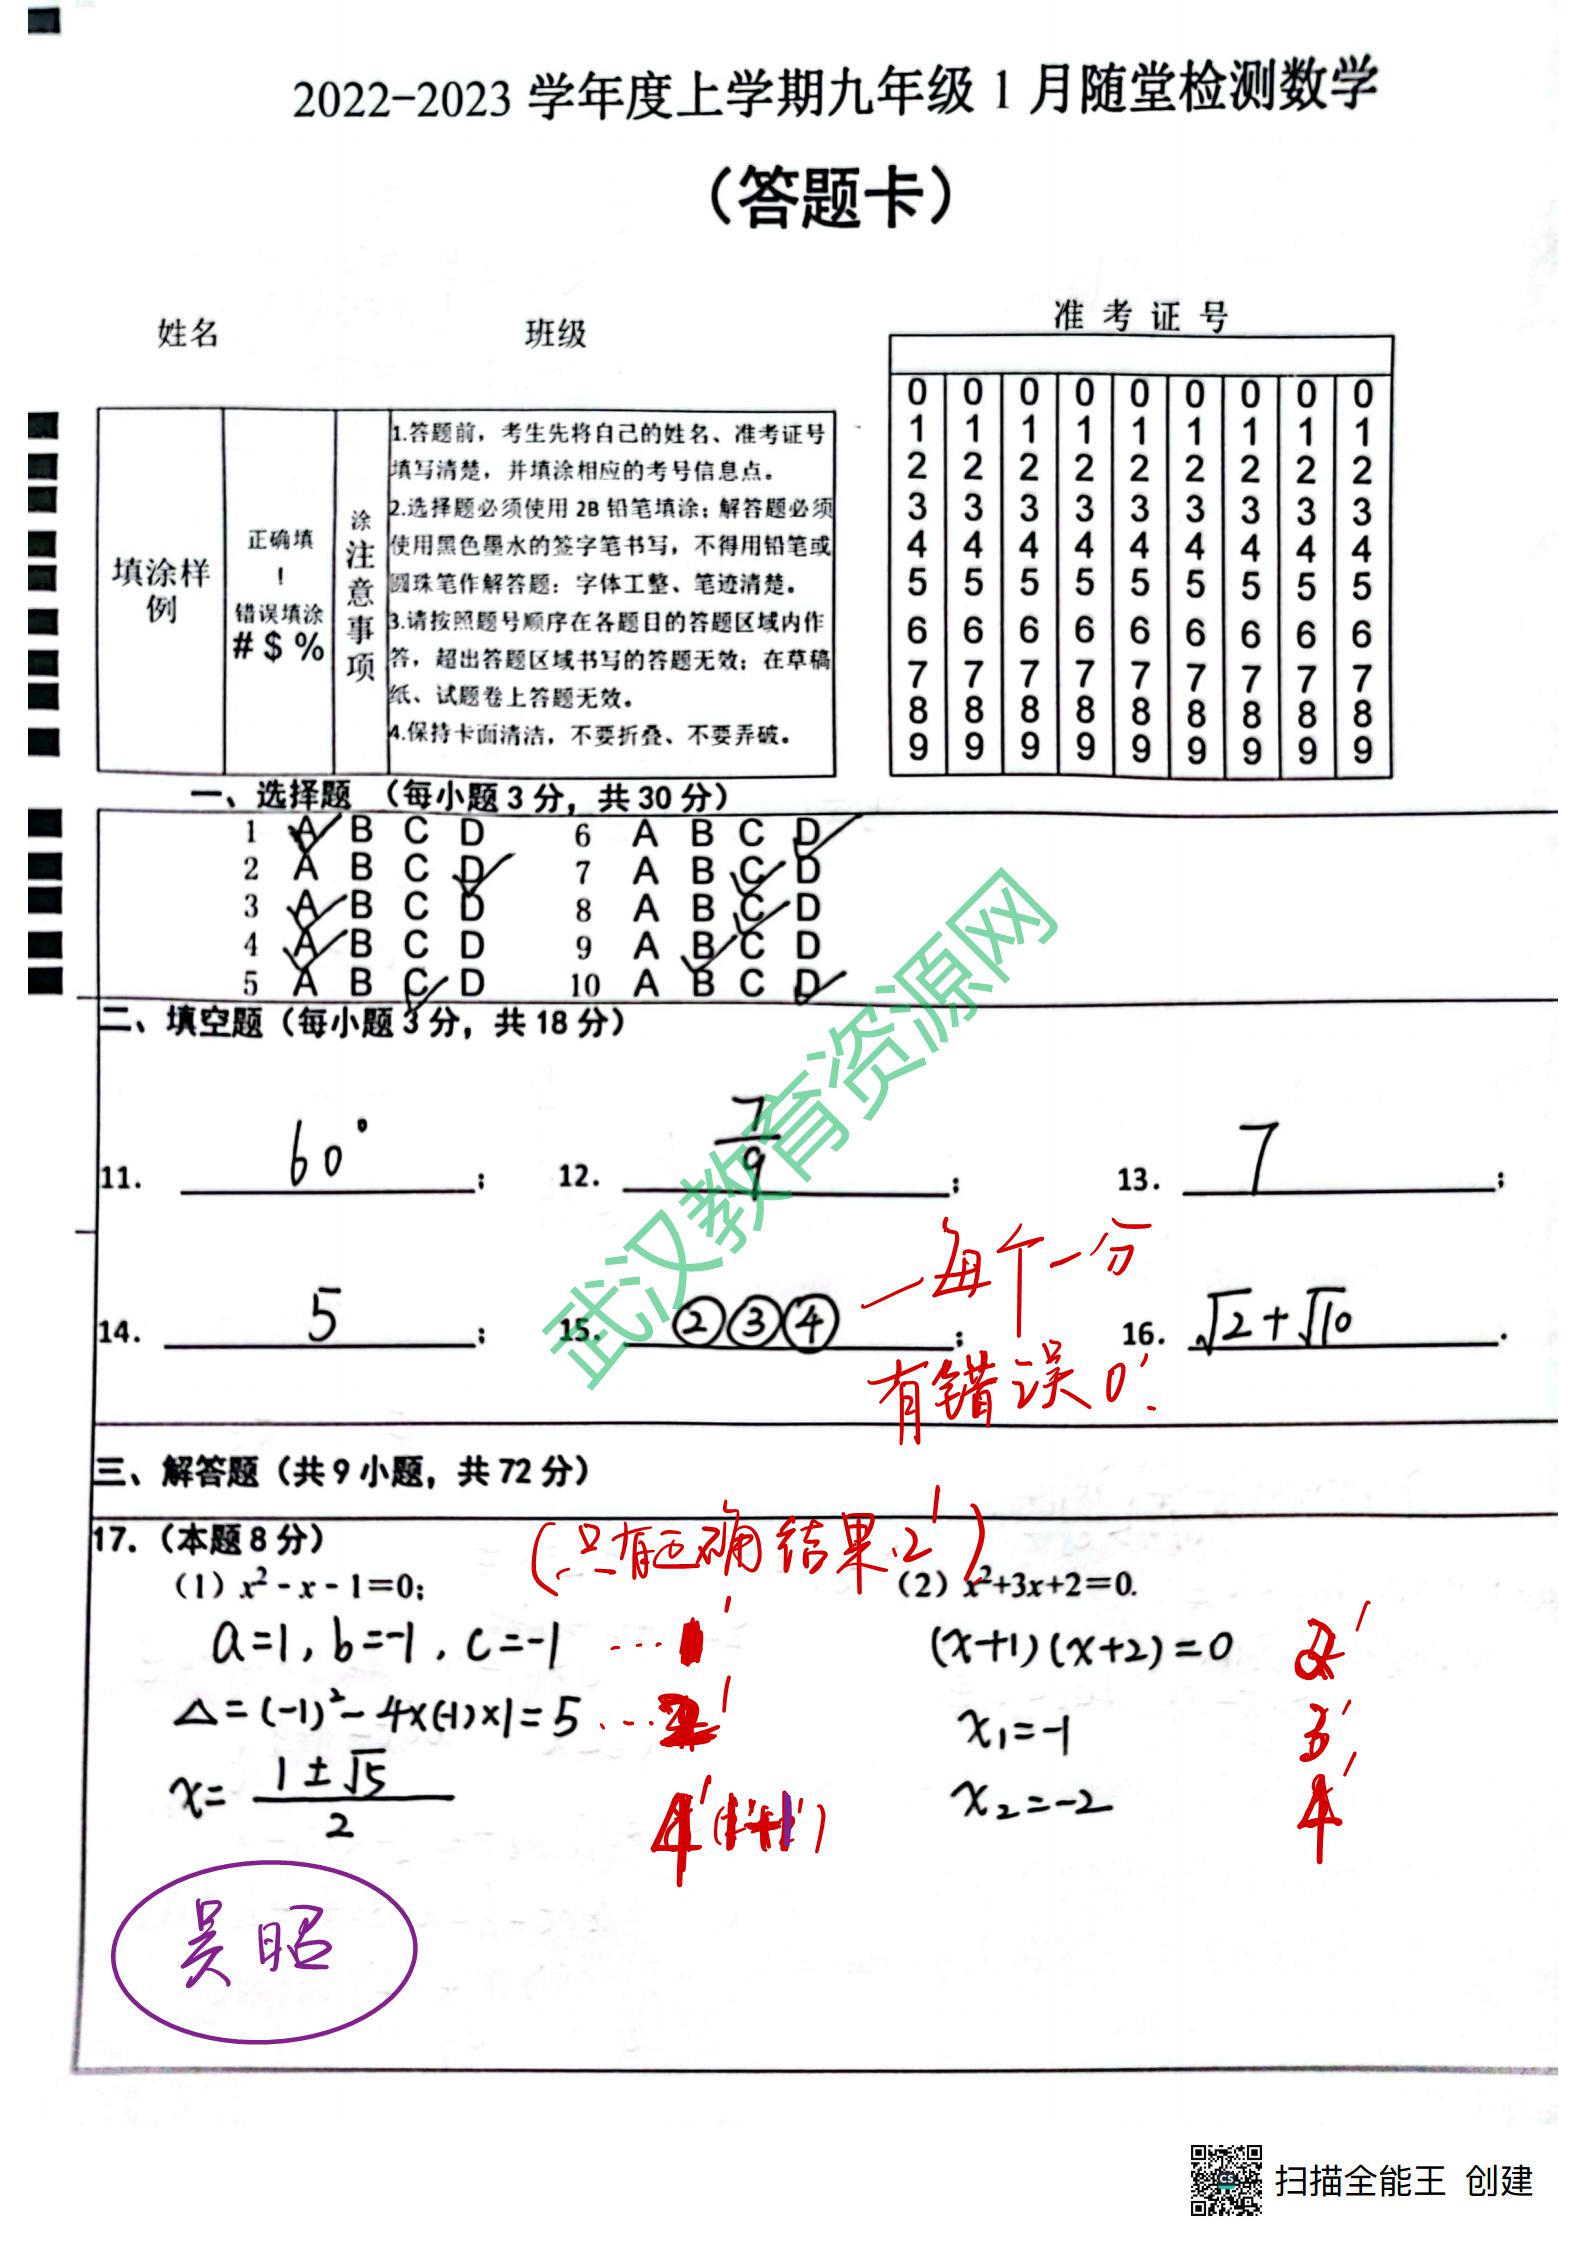 2022-2023 学年度上学期九年级 1 月随堂检测数学
（答题卡）
姓名
班级
准 考 证 号
0 0 0 0 0 0 0 0 0
1 1 1 1 1 1 1 1 1
2 2 2 2 2 2 2 2 2
3 3 3 3 3 3 3 3 3
4 4 4 4 4 4 4 4 4
5 5 5 5 5 5 5 5 5
6 6 6 6 6 6 6 6 6
7 7 7 7 7 7 7 7 7
8 8 8 8 8 8 8 8 8
9 9 9 9 9 9 9 9 9
填涂样
例
正确填
!
错误填涂
# $ %
涂
注
意
事
项
1.答题前，考生先将自己的姓名、准考证号
填写清楚，并填涂相应的考号信息点。
2.选择题必须使用 2B 铅笔填涂；解答题必须
使用黑色墨水的签字笔书写，不得用铅笔或
圆珠笔作解答题：字体工整、笔迹清楚。
3.请按照题号顺序在各题目的答题区域内作
答，超出答题区域书写的答题无效；在草稿
纸、试题卷上答题无效。
4.保持卡面清洁，不要折叠、不要弄破。
一、选择题 （每小题 3 分，共 30 分）
1 A B C D 6 A B C D
2 A B C D 7 A B C D
3 A B C D 8 A B C D
4 A B C D 9 A B C D
5 A B C D 10 A B C D
二、填空题（每小题 3 分，共 18 分）
11. 60° ; 12. 7/9 ; 13. 7 ;
每个一分
14. 5 ; 15. ②③④ ; 16. √2+√10 .
有错误0'.
武汉教育资源网
三、解答题（共 9 小题，共 72 分）
17.（本题 8 分）
(只有正确结果2')
（1）x²-x-1=0; （2）x²+3x+2=0.
a=1, b=-1, c=-1 ... 1' (x+1)(x+2)=0 2'
△=(-1)²-4×(-1)×1=5 ... 2' x₁=-1 3'
x=(1±√5)/2 4'(1'+1') x₂=-2 4'
吴昭
CS
扫描全能王 创建